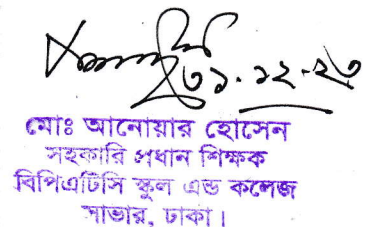 ৩১.১২.২৩
মোঃ আনোয়ার হোসেন
সহকারি প্রধান শিক্ষক
বিপিএটিসি স্কুল এন্ড কলেজ
সাভার, ঢাকা।